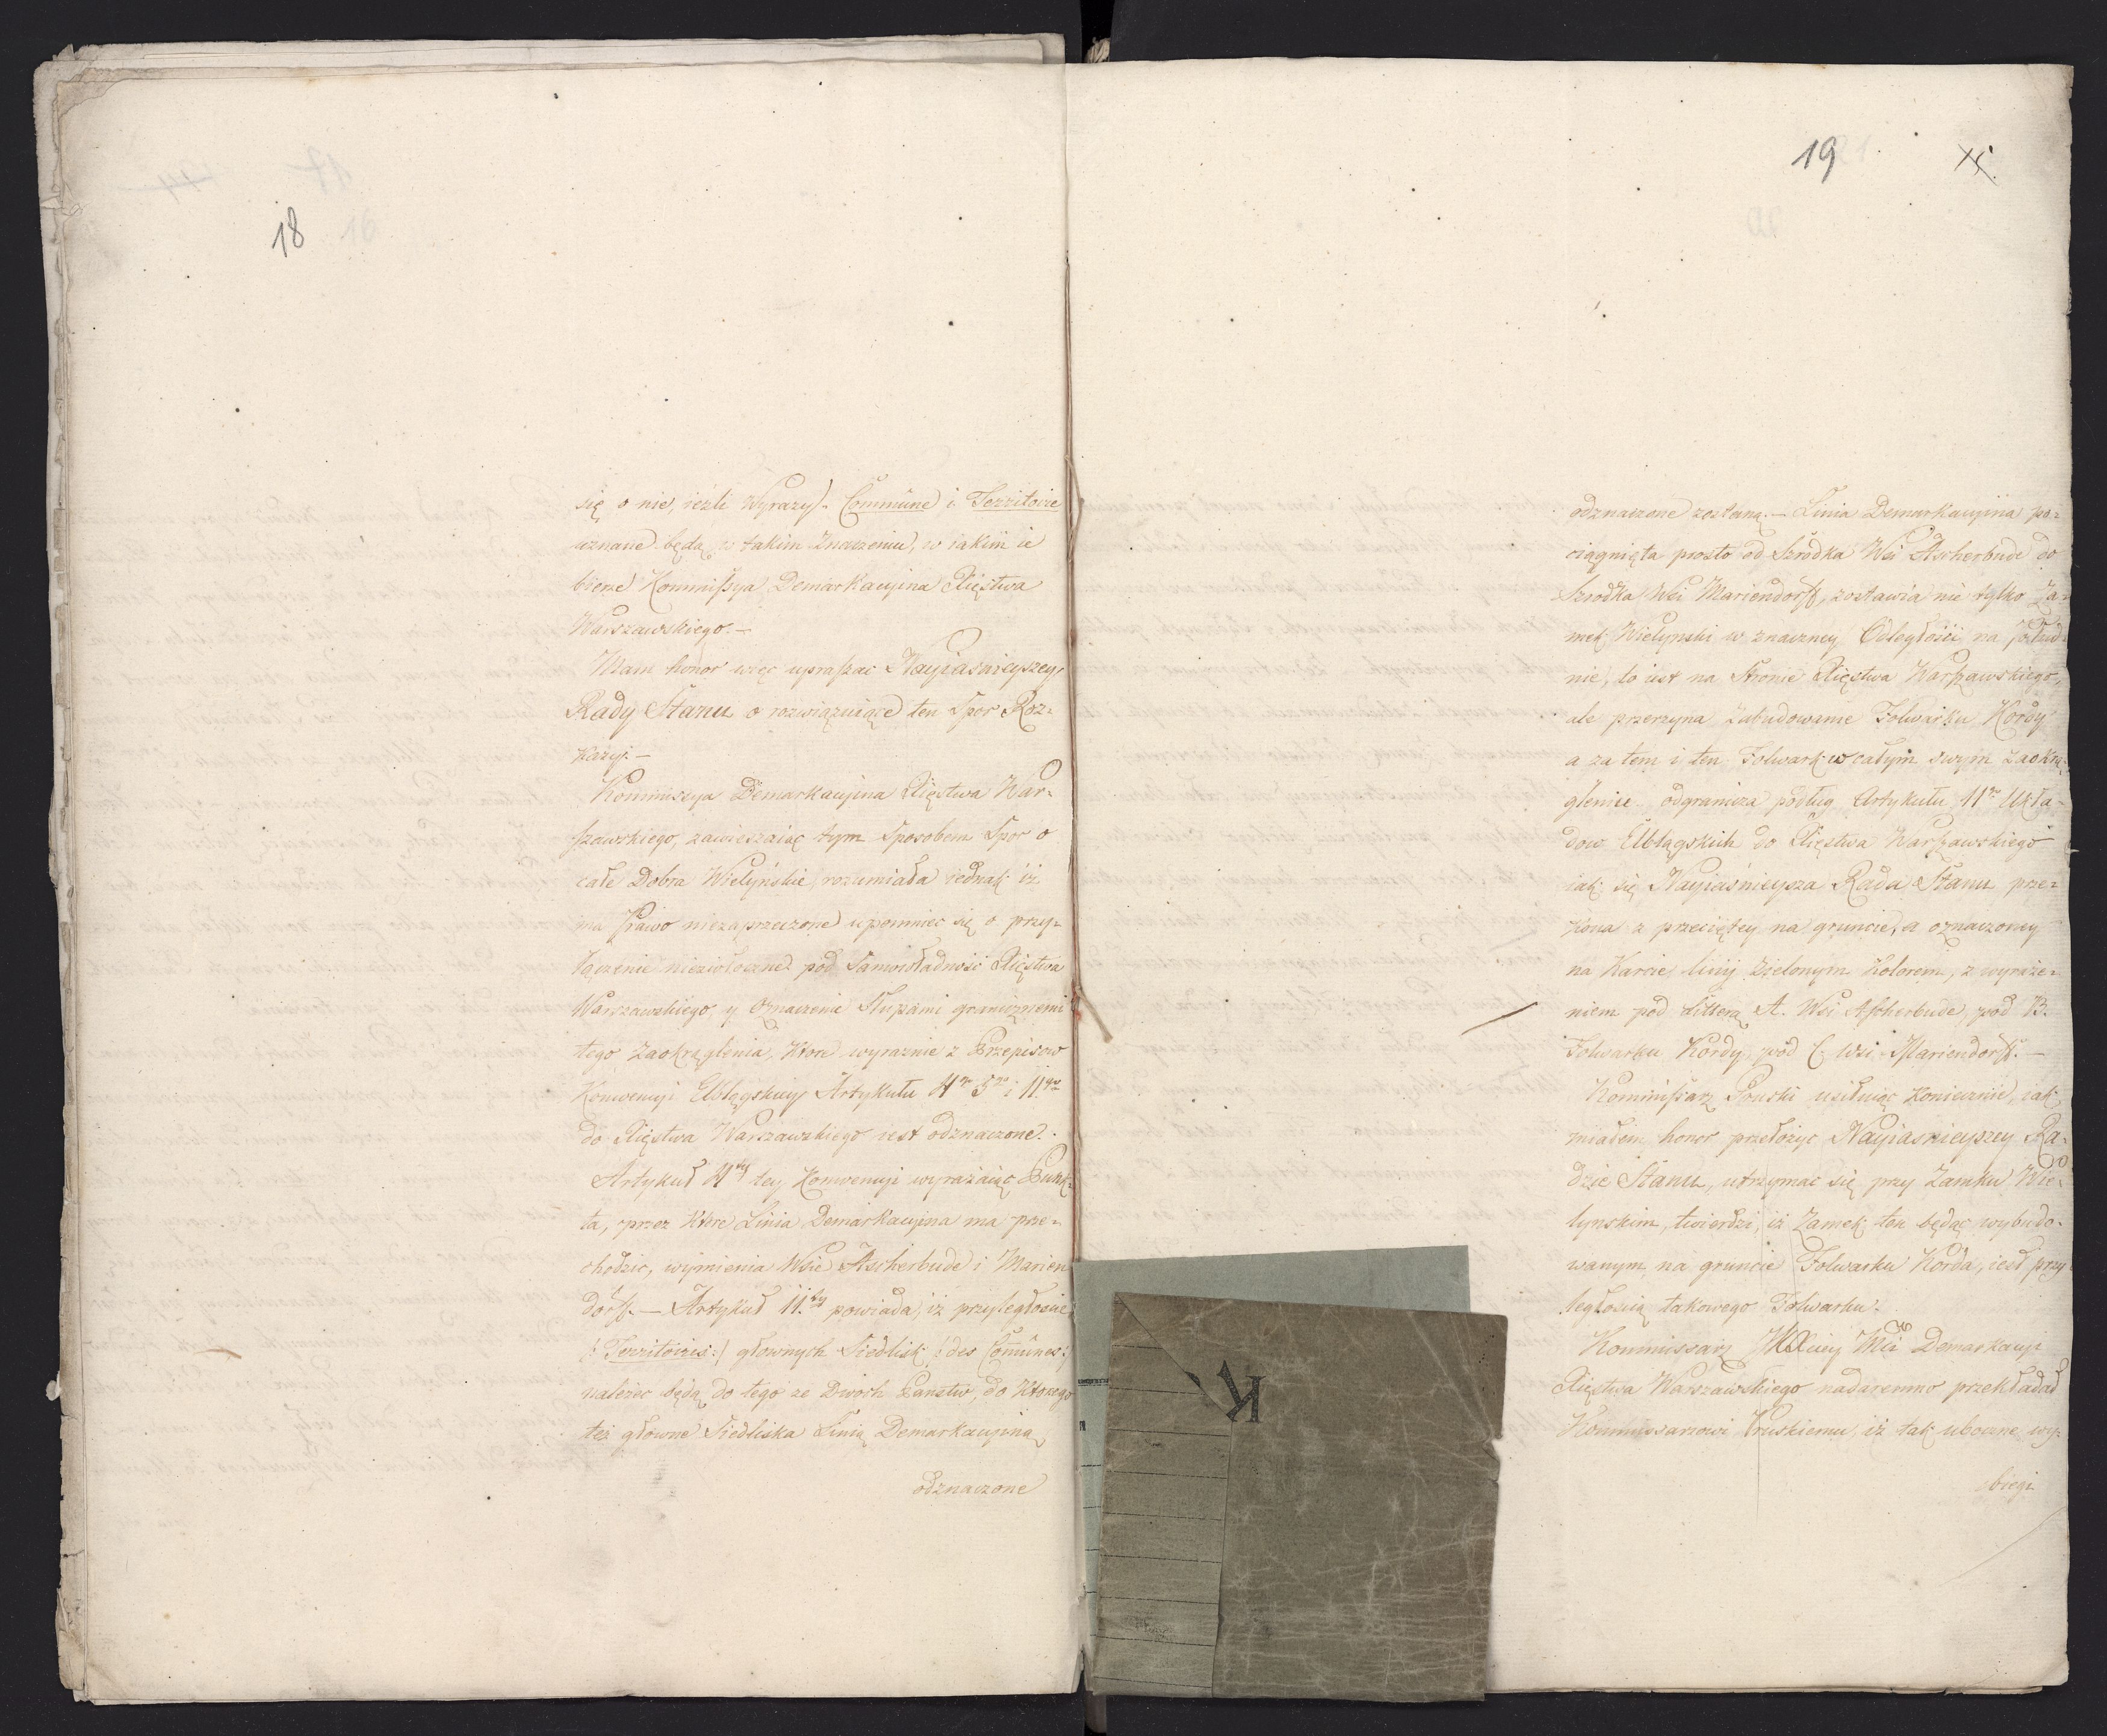 18
się o nie, ieżli Wyrazy). Commune i Territoire
uznane będą w takim Znaczeniu, w iakim ie
bierze Kommissya Demarkacyina Xięstwa
Warszawskiego.—
Mam honor więc upraszać Nayiaśnieyszey
Rady Stanu o rozwiązuiące ten Spor Roz=
kazy.—
Kommissya Demarkacyina Xięstwa War=
szawskiego, zawieszaiąc tym Sposobem Spor o
całe Dobra Wieluńskie rozumiała iednak iż
ma Prawo niezaprzeczone upomniec się o przy=
łączenie niezwłoczne pod Samowładność Xięstwa
Warszawskiego, y Oznaczenie Słupami granicznemi
tego Zaokrąglenia, Ktore wyraznie z Przepisow
Konwencyi Elblągskiey Artykułu 4go 5go i 11go
do Xięstwa Warszawskiego iest odznaczone.
Artykuł 4ty tey Konwencyi wyrażaiąc Punk=
ta, przez Ktore Linia Demarkacyina ma prze=
chodzic, wymienia Wsie Ascherbude i Marien
dorff.— Artykuł 11.ty powiada, iż przyległoscie
/: Territoires:/ głownych Siedlisk /: des Communes:/
należec będą do tego ze Dwoch Panstw, do Ktorego
też głowne Siedliska Linią Demarkacyiną
odznaczone
19 15.
odznaczone zostaną.— Linia Demarkacyina po=
ciągnięta prosto od Szrodka Wsi Ascherbude do
Szrodka Wsi Mariendorff, zostawia nie tylko Za=
mek Wielynski w znaczney Odległości na połud=
nie, to iest na Stronie Xięstwa Warszawskiego,
ale przerzyna Zabudowanie Folwarku Kordy
a za tem i ten Folwark w całym swym Zaokrą=
gleniu odgranicza podług Artykułu 11go Ukła=
dow Elblągskich do Xięstwa Warszawskiego
iak się Nayiaśnieysza Rada Stanu prze=
kona z przeciętey na gruncie, a oznaczoney
na Karcie linij Zielonym Kolorem, z wyraże=
niem pod Litterą A. Wsi Ascherbude, pod B.
Folwarku Kordy, pod C. Wsi Mariendorff.—
Kommissarz Pruski usiłuiąc Koniecznie, iak
miałem honor przełożyc Nayiasnieyszey Ra=
dzie Stanu, utrzymac się przy Zamku Wie=
lynskim, twierdzi, iż Zamek ten będąc wybudo=
wanym na gruncie Folwarku Korda, iest przy
ległoscią takowego Folwarku.
Kommissarz Mci Demarkacyi
Xięstwa Warszawskiego nadaremno przekładał
Kommissarzowi Pruskiemu, iż tak uboczne wy=
biegi
K